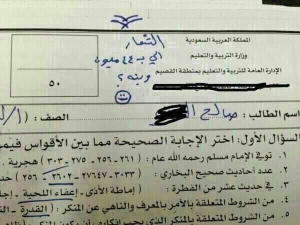 المملكة العربية السعودية
وزارة التربية والتعليم
الإدارة العامة للتربية والتعليم بمنطقة القصيم
الشعار
الي ب ٤٤ مليون
وينه ؟
٥٠
اسم الطالب : صالح
الصف :
السؤال الأول: اختر الإجابة الصحيحة مما بين الأقواس فيما
١. توفي الإمام مسلم رحمه الله عام : (٢٦١ - ٢٥٦ - ٢٧٥ - ٣٠٣) هجرية .
٢. عدد أحاديث صحيح البخاري : (٣٠٣٣ - ٢٧٦٤٧ - ٢٦٠٢ - ٢٥٦
٣. في حديث عشر من الفطرة : ( إماطة الأذى - إعفاء اللحية -
٤. من الشروط المتعلقة بالآمر بالمعروف والناهي عن المنكر : ( القدرة -
٥. من الشروط المتعلقة بالمنكر الذي يجب إنكاره أن يكون